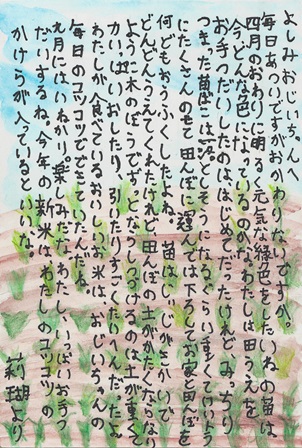 よしみおじいちゃんへ
毎日あついですがおかわりないですか。
四月のおわりに明るく元気な緑色をしたいねの苗は、
今どんな色になっているのかな。わたしは田うえを
お手つだいしたのは、はじめてだったけれど、みっちり
つまった苗ばこは落としそうになるぐらい重くて、けいトラ
にたくさんのせて田んぼに運んでは下ろしてお家と田んぼを
何どもおうふくしたよね。苗はじいじがきかいで
どんどんうえてくれたけれど、田んぼの土がかたくならない
ように木のぼうでザッとならしつづけるのは土が重くて
かいっぱいおしたり、引いたりすごくたいへんだったよ。
わたしが今食べているおいしいお米は、おじいちゃんの
毎日のコツコツでできていたんだね。
九月にはいねかり。楽しみだな。わたし、いっぱいお手つ
だいするね。今年の新米はわたしのコツコツの
かけらが入っているといいな。
莉瑚より